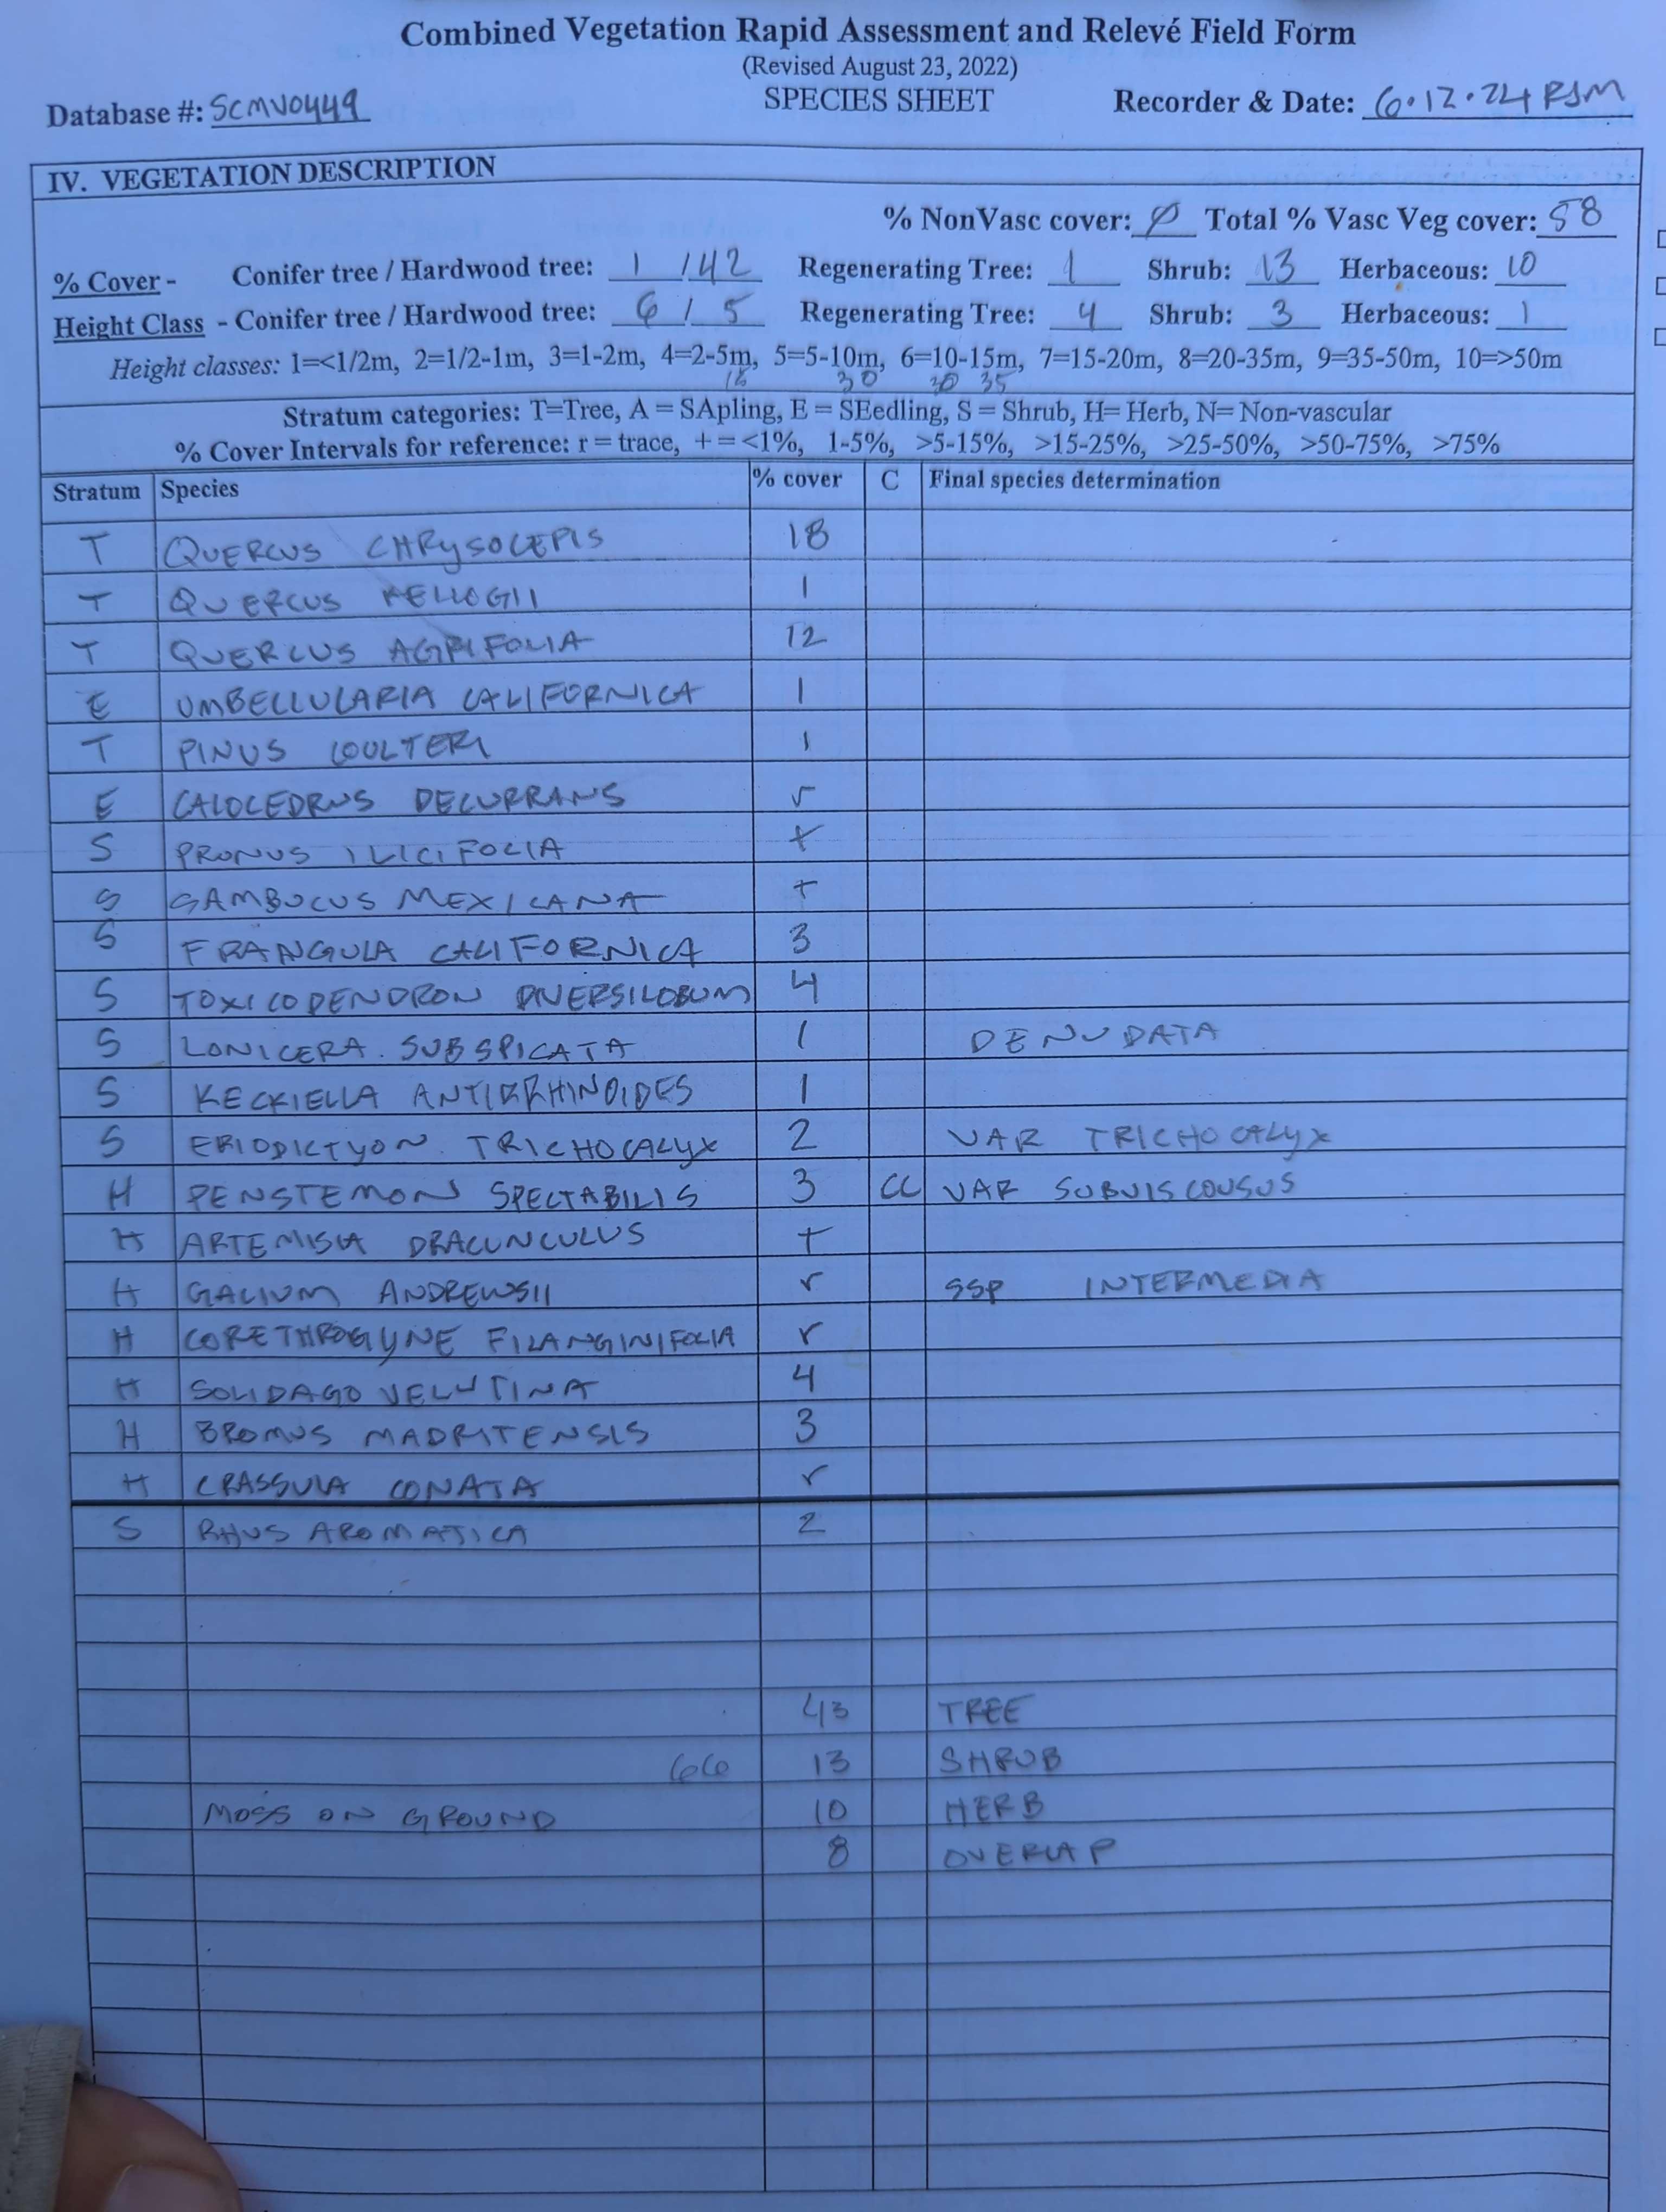 Combined Vegetation Rapid Assessment and Relevé Field Form
(Revised August 23, 2022)
Database #: SCMV0449 SPECIES SHEET Recorder & Date: 6.12.24 RJM
IV. VEGETATION DESCRIPTION
% NonVasc cover: Ø Total % Vasc Veg cover: 58
% Cover - Conifer tree / Hardwood tree: 1 / 42 Regenerating Tree: 1 Shrub: 13 Herbaceous: 10
Height Class - Conifer tree / Hardwood tree: 6 / 5 Regenerating Tree: 4 Shrub: 3 Herbaceous: 1
Height classes: 1=<1/2m, 2=1/2-1m, 3=1-2m, 4=2-5m, 5=5-10m, 6=10-15m, 7=15-20m, 8=20-35m, 9=35-50m, 10=>50m
30 35
Stratum categories: T=Tree, A = SApling, E = SEedling, S = Shrub, H= Herb, N= Non-vascular
% Cover Intervals for reference: r = trace, + = <1%, 1-5%, >5-15%, >15-25%, >25-50%, >50-75%, >75%
Stratum Species % cover C Final species determination
T QUERCUS CHRYSOLEPIS 18
T QUERCUS KELLOGII 1
T QUERCUS AGRIFOLIA 12
E UMBELLULARIA CALIFORNICA 1
T PINUS COULTERI 1
E CALOCEDRUS DECURRANS r
S PRUNUS ILICIFOLIA +
S SAMBUCUS MEXICANA +
S FRANGULA CALIFORNICA 3
S TOXICODENDRON DIVERSILOBUM 4
S LONICERA SUBSPICATA 1 DENUDATA
S KECKIELLA ANTIRRHINOIDES 1
S ERIODICTYON TRICHOCALYX 2 VAR TRICHOCALYX
H PENSTEMON SPECTABILIS 3 CC VAR SUBVISCOUSUS
H ARTEMISIA DRACUNCULUS +
H GALIUM ANDREWSII r SSP INTERMEDIA
H CORETHROGYNE FILANGINIFOLIA r
H SOLIDAGO VELUTINA 4
H BROMUS MADRITENSIS 3
H CRASSULA CONATA r
S RHUS AROMATICA 2
43 TREE
66 13 SHRUB
MOSS ON GROUND 10 HERB
8 OVERLAP